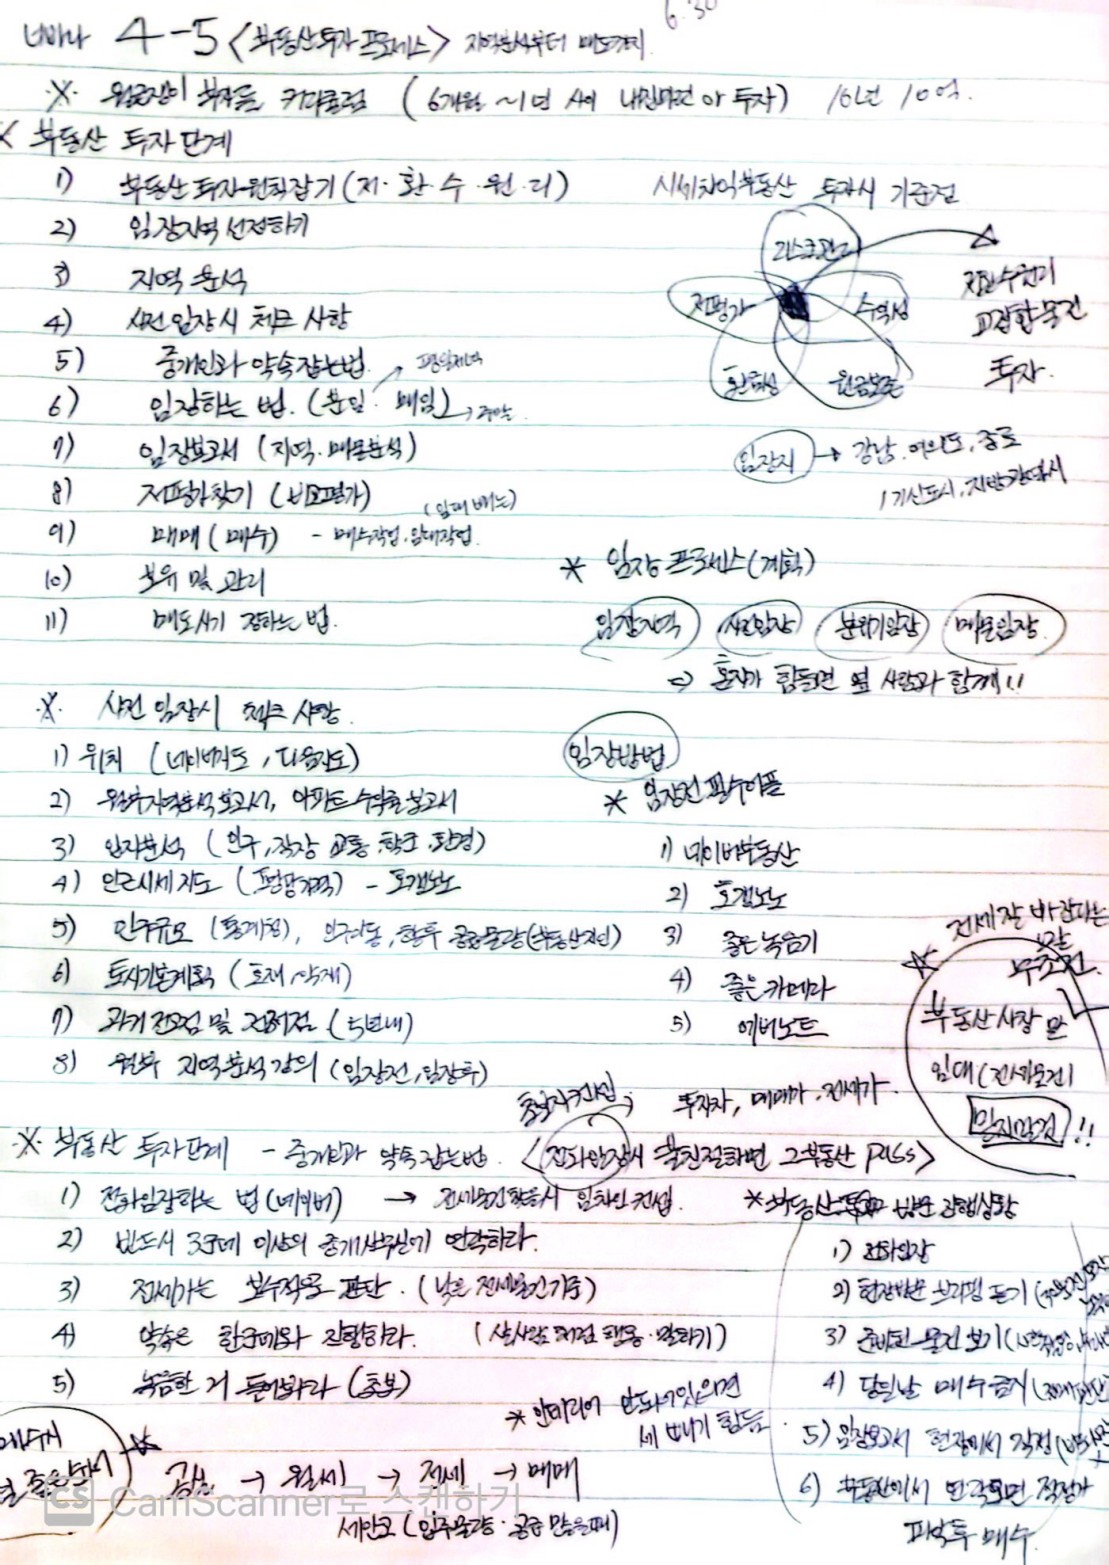 너바나 4-5 <부동산투자 프로세스> 지역분석부터 매도까지.
6.30
※ 월급쟁이 부자들 커리큘럼 (6개월 ~1년 사이 내집마련 or 투자) 10년 10억.
부동산 투자단계
1) 부동산 투자원칙잡기 (저·환·수·원·리)
2) 임장지역 선정하기
3) 지역 분석
4) 사전 임장시 체크 사항
5) 중개인과 약속잡는법.
6) 임장하는 법. (분임·매임) 평일저녁 → 주말
7) 임장보고서 (지역·매물분석)
8) 저평가찾기 (비교평가)
9) 매매 (매수) - 매수작업·임대작업 (임대 빼는)
10) 보유 및 관리
11) 매도시기 정하는 법.
시세차익부동산 투자시 기준점
리스크관리
저평가
수익성
환금성
원금보존
저환수원리
교집합물건
투자.
임장지 → 강남·여의도, 종로
1기신도시, 지방광역시
* 임장 프로세스(계획)
임장지역 사전임장 분위기임장 매물임장
⇒ 혼자가 힘들면 옆 사람과 함께!!
※ 사전 임장시 체크 사항.
1) 위치 (네이버지도, 다음지도)
2) 월부지역분석보고서, 아파트 수익률 보고서
3) 입지분석 (인구, 직장·교통·학군·환경)
4) 인근시세지도 (평당가격) - 호갱노노
5) 인구규모 (통계청), 인구이동, 향후 공급물량(부동산지인)
6) 도시기본계획 (호재, 악재)
7) 과거 전고점 및 전저점 (5년내)
8) 월부 지역분석강의 (임장전, 임장후)
임장방법
* 임장전 필수어플
1) 네이버부동산
2) 호갱노노
3) 좋은녹음기
4) 좋은카메라
5) 에버노트
전세 잘 나간다는
말은
무조건.
부동산사장 말
임대 (전세물건)
믿지말것!!
→ 투자자, 매매가, 전세가
※ 부동산 투자단계 - 중개인과 약속잡는법. <전화임장시 불친절하면 그부동산 pass>
1) 전화임장하는 법 (네이버) → 전세물건확인시 임차인 컨셉.
2) 반드시 3군데 이상의 중개사무실에 연락하라.
3) 전세가는 보수적으로 판단. (낮은 전세물건기준)
4) 약속은 한군데와 진행하라. (살사람처럼 행동·말하기)
5) 녹음한 거 들어봐라 (초보)
* 부동산 방문 진행상황
1) 전화임장
2) 현장방문 브리핑 듣기
3) 준비된 물건 보기
4) 당일날 매수금지
5) 임장보고서 현장에서 작성
6) 부동산에서 연락오면 적정가
파악후 매수.
* 인테리어 안되어있으면
세 빼기 힘듦
공실 → 월세 → 전세 → 매매
세안고 (입주물량·공급 많을때)
CS CamScanner로 스캔하기